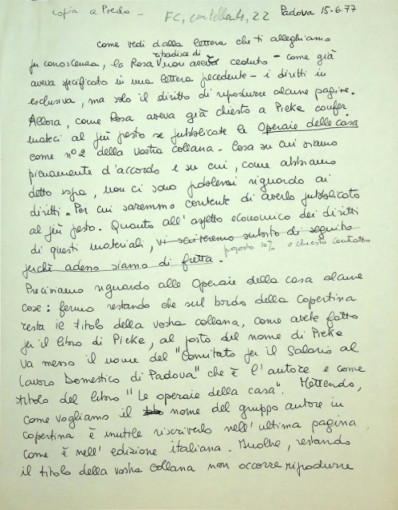 copia a Piedo - FC, cartellate, 22 Padova 15.6.77
come vedi dalla lettera che ti alleghiamo
per conoscenza, la Rosa ribadiva di non aver ceduto - come già
aveva specificato in una lettera precedente - i diritti in
esclusiva, ma solo il diritto di riprodurre alcune pagine.
Allora, come Rosa aveva già chiesto a Pieke confer
mateci al più presto se pubblicate le Operaie della casa
come nº 2 della vostra collana. Cosa su cui siamo
pienamente d'accordo e su cui, come abbiamo
detto sopra, non ci sono problemi riguardo ai
diritti. Per cui saremmo contente di averlo pubblicato
al più presto. Quanto all'aspetto economico dei diritti
di questi materiali, vi scriveremo subito di seguito
proposto 10% e chiesto contratto
perché adesso siamo di fretta.
Precisiamo riguardo alle Operaie della casa alcune
cose: fermo restando che sul bordo della copertina
resta il titolo della vostra collana, come avete fatto
per il libro di Pieke, al posto del nome di Pieke
va messo il nome del "Comitato per il Salario al
Lavoro Domestico di Padova" che è l'autore e come
titolo del libro "Le operaie della casa". Mettendo,
come vogliamo il nome del gruppo autore in
copertina è inutile riscriverlo nell'ultima pagina
come è nell'edizione italiana. Inoltre, restando
il titolo della vostra collana non occorre riprodurre